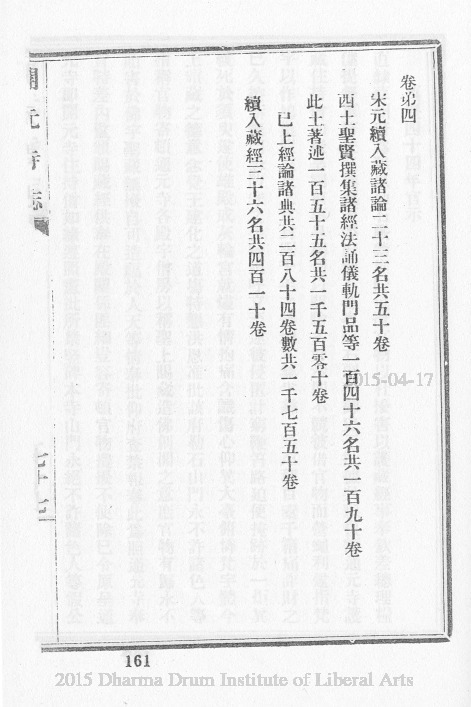 卷弟四
宋元續入藏諸論二十三名共五十卷
西土聖賢撰集諸經法誦儀軌門品等一百四十六名共一百九十卷
此土著述一百五十五名共一千五百零十卷
已上經論諸典共二百八十四卷數共一千七百五十卷
續入藏經三十六名共四百一十卷
開元寺志
七十七
161
2015-04-17
2015 Dharma Drum Institute of Liberal Arts